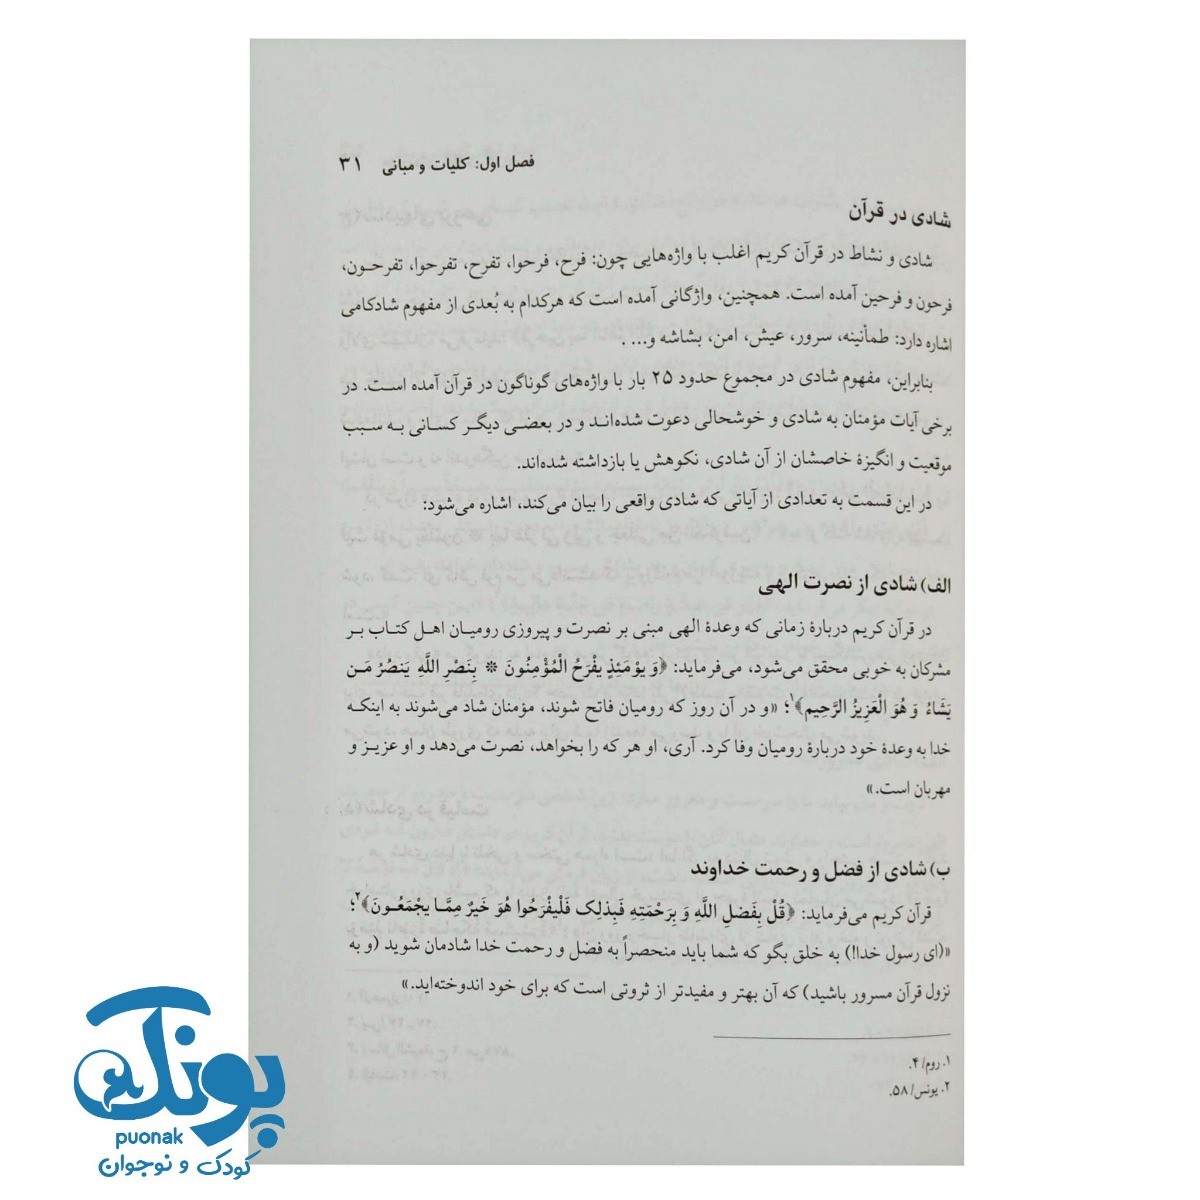 فصل اول: کلیات و مبانی ۳۱
شادی در قرآن
شادی و نشاط در قرآن کریم اغلب با واژه‌هایی چون: فرح، فرحوا، تفرح، تفرحوا، تفرحون،
فرحون و فرحین آمده است. همچنین، واژگانی آمده است که هرکدام به بُعدی از مفهوم شادکامی
اشاره دارد: طمأنینه، سرور، عیش، امن، بشاشه و... .
بنابراین، مفهوم شادی در مجموع حدود ۲۵ بار با واژه‌های گوناگون در قرآن آمده است. در
برخی آیات مؤمنان به شادی و خوشحالی دعوت شده‌اند و در بعضی دیگر کسانی به سبب
موقعیت و انگیزهٔ خاصشان از آن شادی، نکوهش یا بازداشته شده‌اند.
در این قسمت به تعدادی از آیاتی که شادی واقعی را بیان می‌کند، اشاره می‌شود:
الف) شادی از نصرت الهی
در قرآن کریم دربارهٔ زمانی که وعدهٔ الهی مبنی بر نصرت و پیروزی رومیان اهل کتاب بر
مشرکان به خوبی محقق می‌شود، می‌فرماید: ﴿وَ يَوْمَئِذٍ يفْرَحُ الْمُؤْمِنُونَ * بِنَصْرِ اللَّهِ ينصُرُ مَـن
يَشَاءُ وَ هُوَ الْعَزِيزُ الرَّحِيم﴾۱؛ «و در آن روز که رومیان فاتح شوند، مؤمنان شاد می‌شوند به اینکه
خدا به وعدهٔ خود دربارهٔ رومیان وفا کرد. آری، او هر که را بخواهد، نصرت می‌دهد و او عزیز و
مهربان است.»
ب) شادی از فضل و رحمت خداوند
قرآن کریم می‌فرماید: ﴿قُلْ بِفَضلِ اللَّهِ وَ بِرَحْمَتِهِ فَبِذلِک فَلْيفْرَحُوا هُوَ خَيرٌ مِمَّا يجْمَعُـونَ﴾۲؛
«(ای رسول خدا!) به خلق بگو که شما باید منحصراً به فضل و رحمت خدا شادمان شوید (و به
نزول قرآن مسرور باشید) که آن بهتر و مفیدتر از ثروتی است که برای خود اندوخته‌اید.»
۱. روم/ ۴.
۲. یونس/ ۵۸.
پونک
puonak
کودک و نوجوان